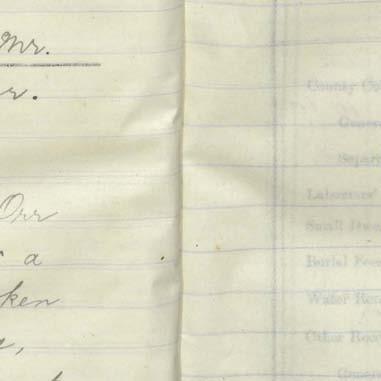 Mr.
r.
Orr
a
ken
County Co
Gener
Separ
Labourers'
Small Dwe
Burial
Water
Other
Gener